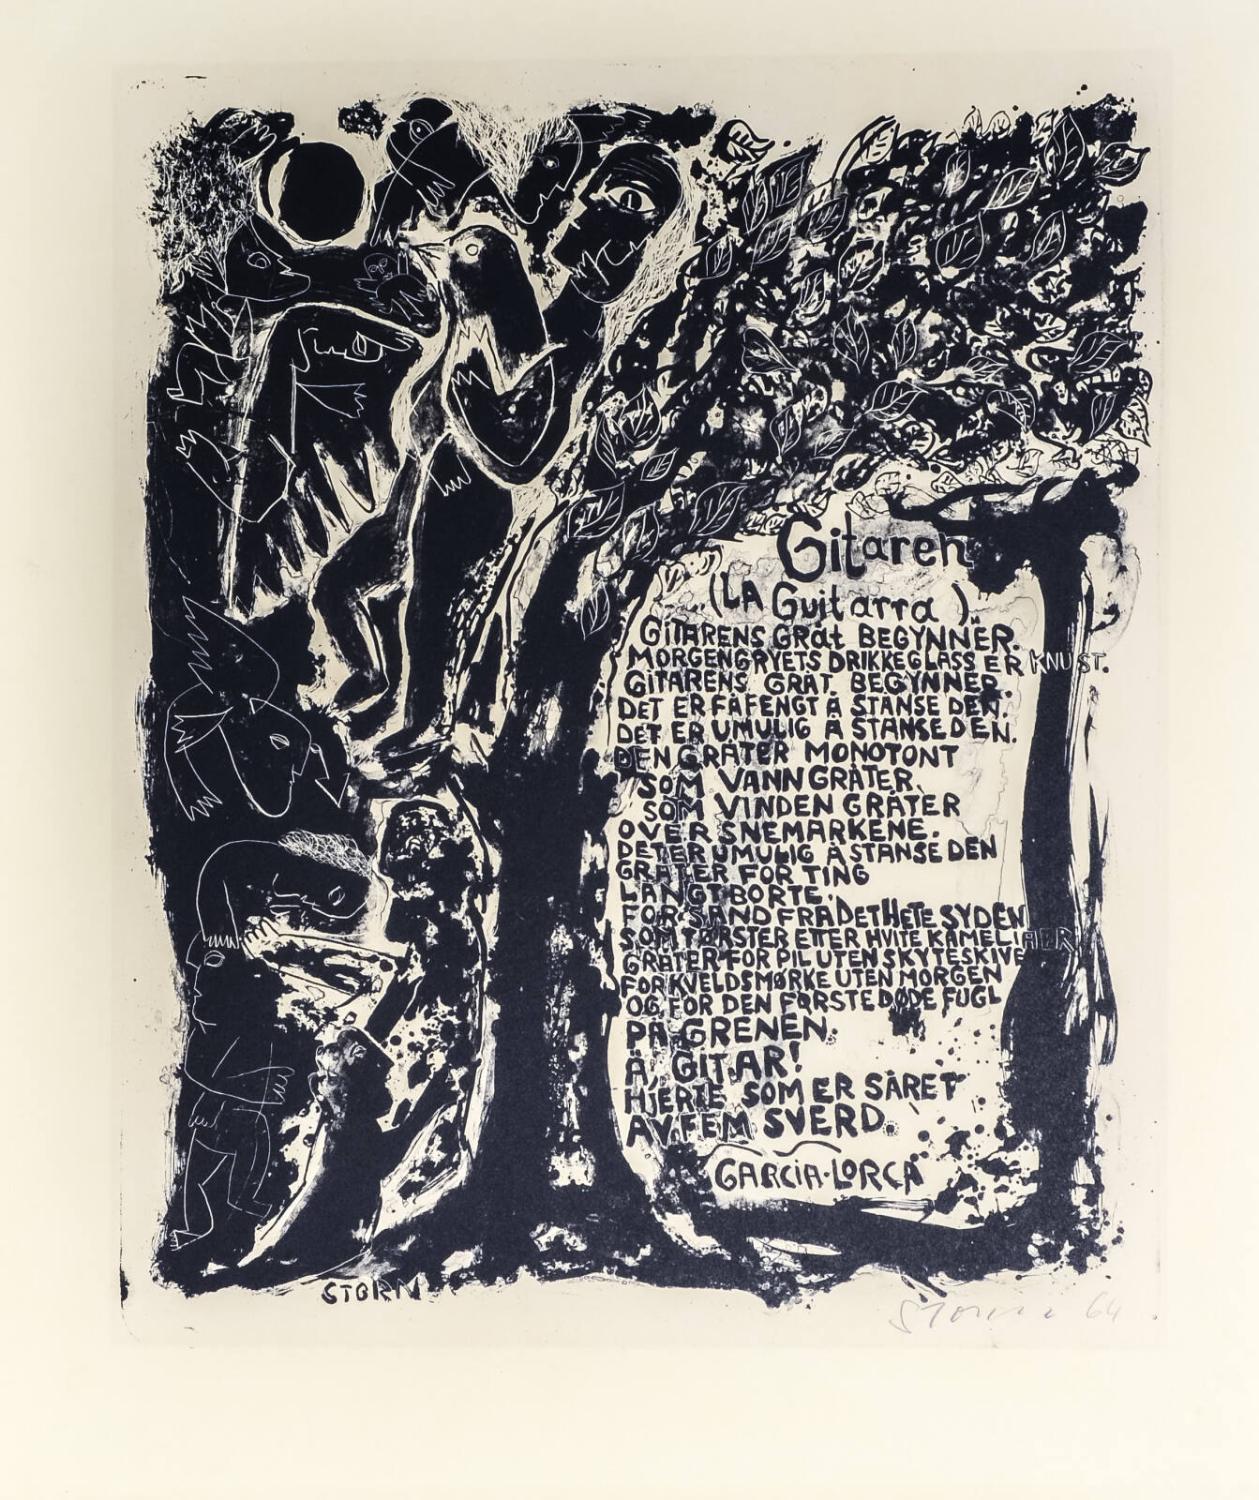 Gitaren
(LA Guitarra)
GITARENS GRåt BEGYNNER.
MORGENGRYETS DRIKKEGLASS ER KNUST.
GITARENS GRÅT BEGYNNER.
DET ER FÅFENGT Å STANSE DEN.
DET ER UMULIG Å STANSE DEN.
DEN GRÅTER MONOTONT
SOM VANN GRÅTER
SOM VINDEN GRÅTER
OVER SNEMARKENE.
DET ER UMULIG Å STANSE DEN
GRÅTER FOR TING
LANGT BORTE.
FOR SAND FRA DET HETE SYDEN
SOM TØRSTER ETTER HVITE KAMELIAER
GRÅTER FOR PIL UTEN SKYTESKIVE
FOR KVELDSMØRKE UTEN MORGEN
OG FOR DEN FØRSTE DØDE FUGL
PÅ GRENEN.
Å, GITAR!
HJERTE SOM ER SÅRET
AV FEM SVERD.
GARCIA-LORCA
STORN
64